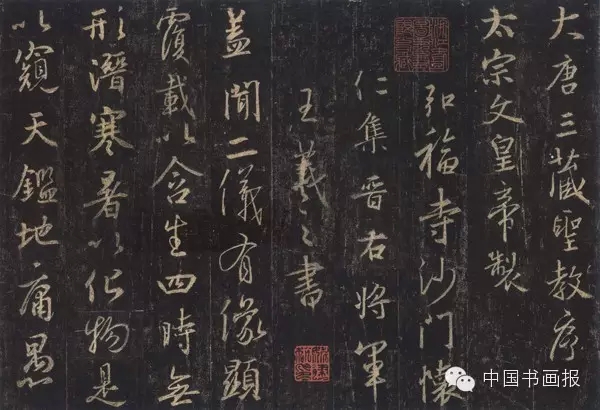 大唐三藏聖教序
太宗文皇帝製
弘福寺沙門懷
仁集晉右將軍
王羲之書
蓋聞二儀有像顯
覆載以含生四時無
形潛寒暑以化物是
以窺天鑑地庸愚
中国书画报